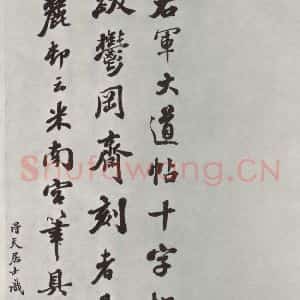 右軍大道帖十字
鬱岡齋刻者
麗却云米南宮筆具
得天居士識
Shufawang.CN